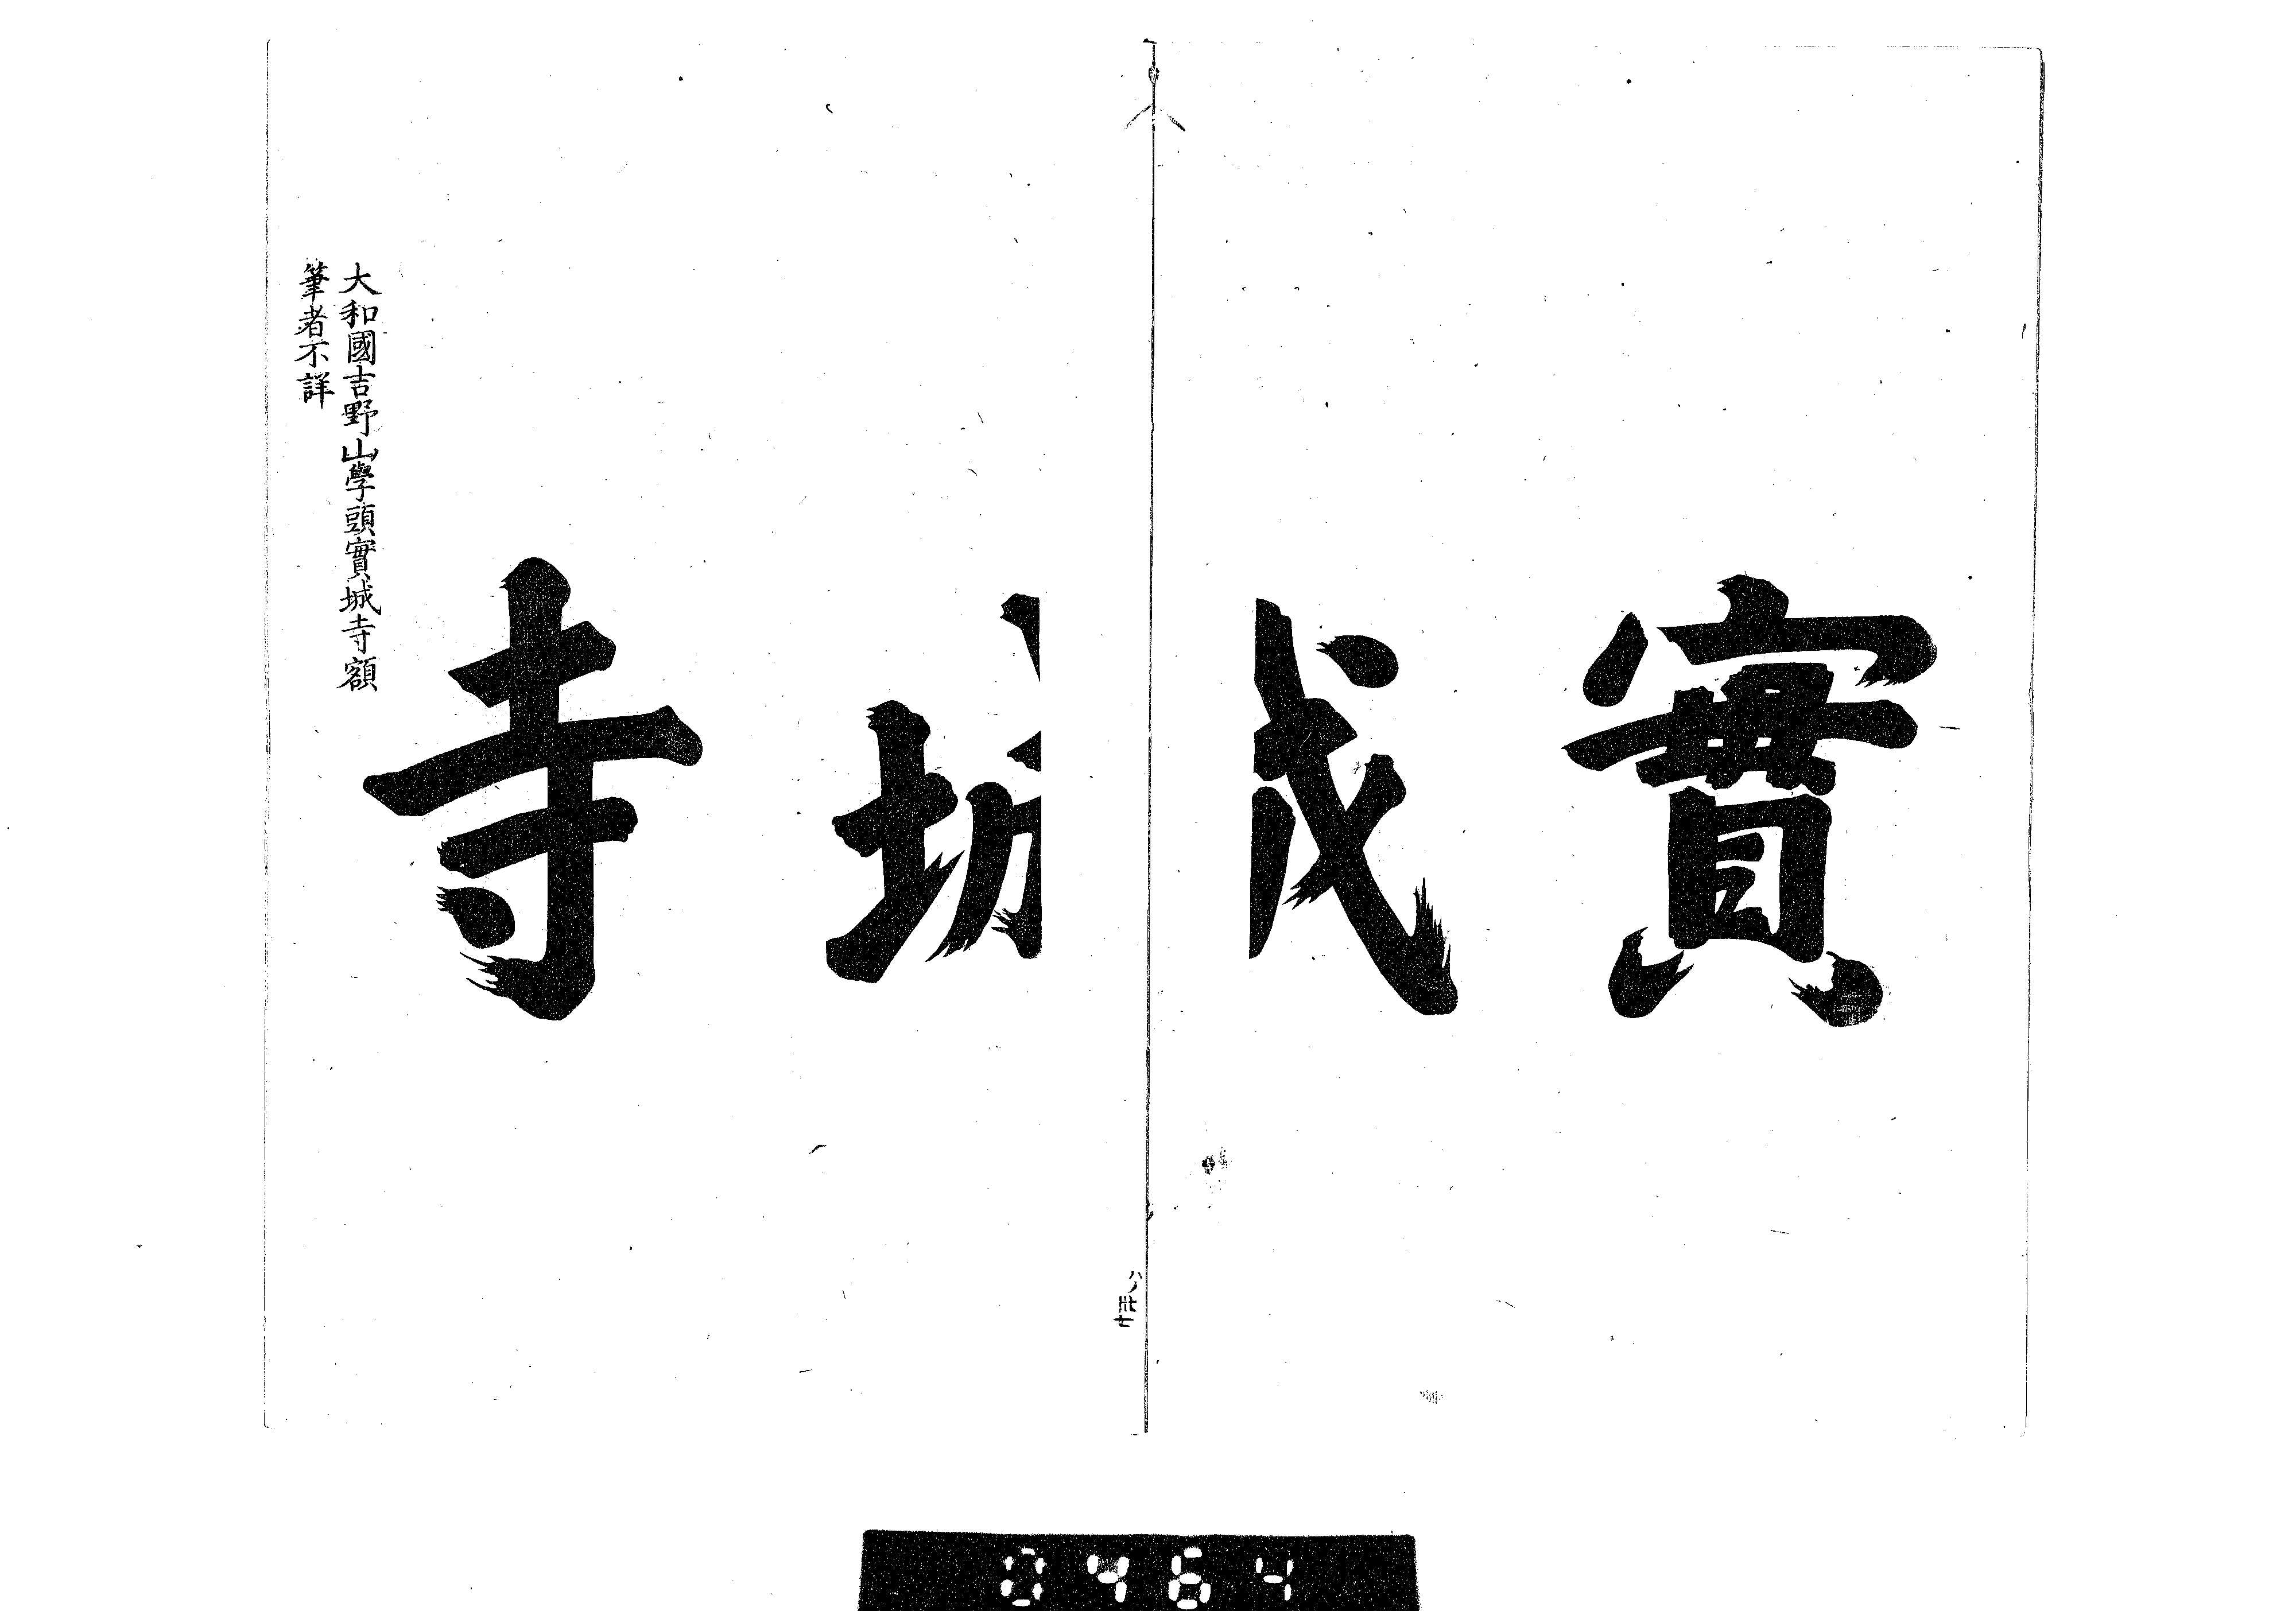 實城寺
大和國吉野山學頭實城寺額
筆者不詳
八ノ卅七
0464